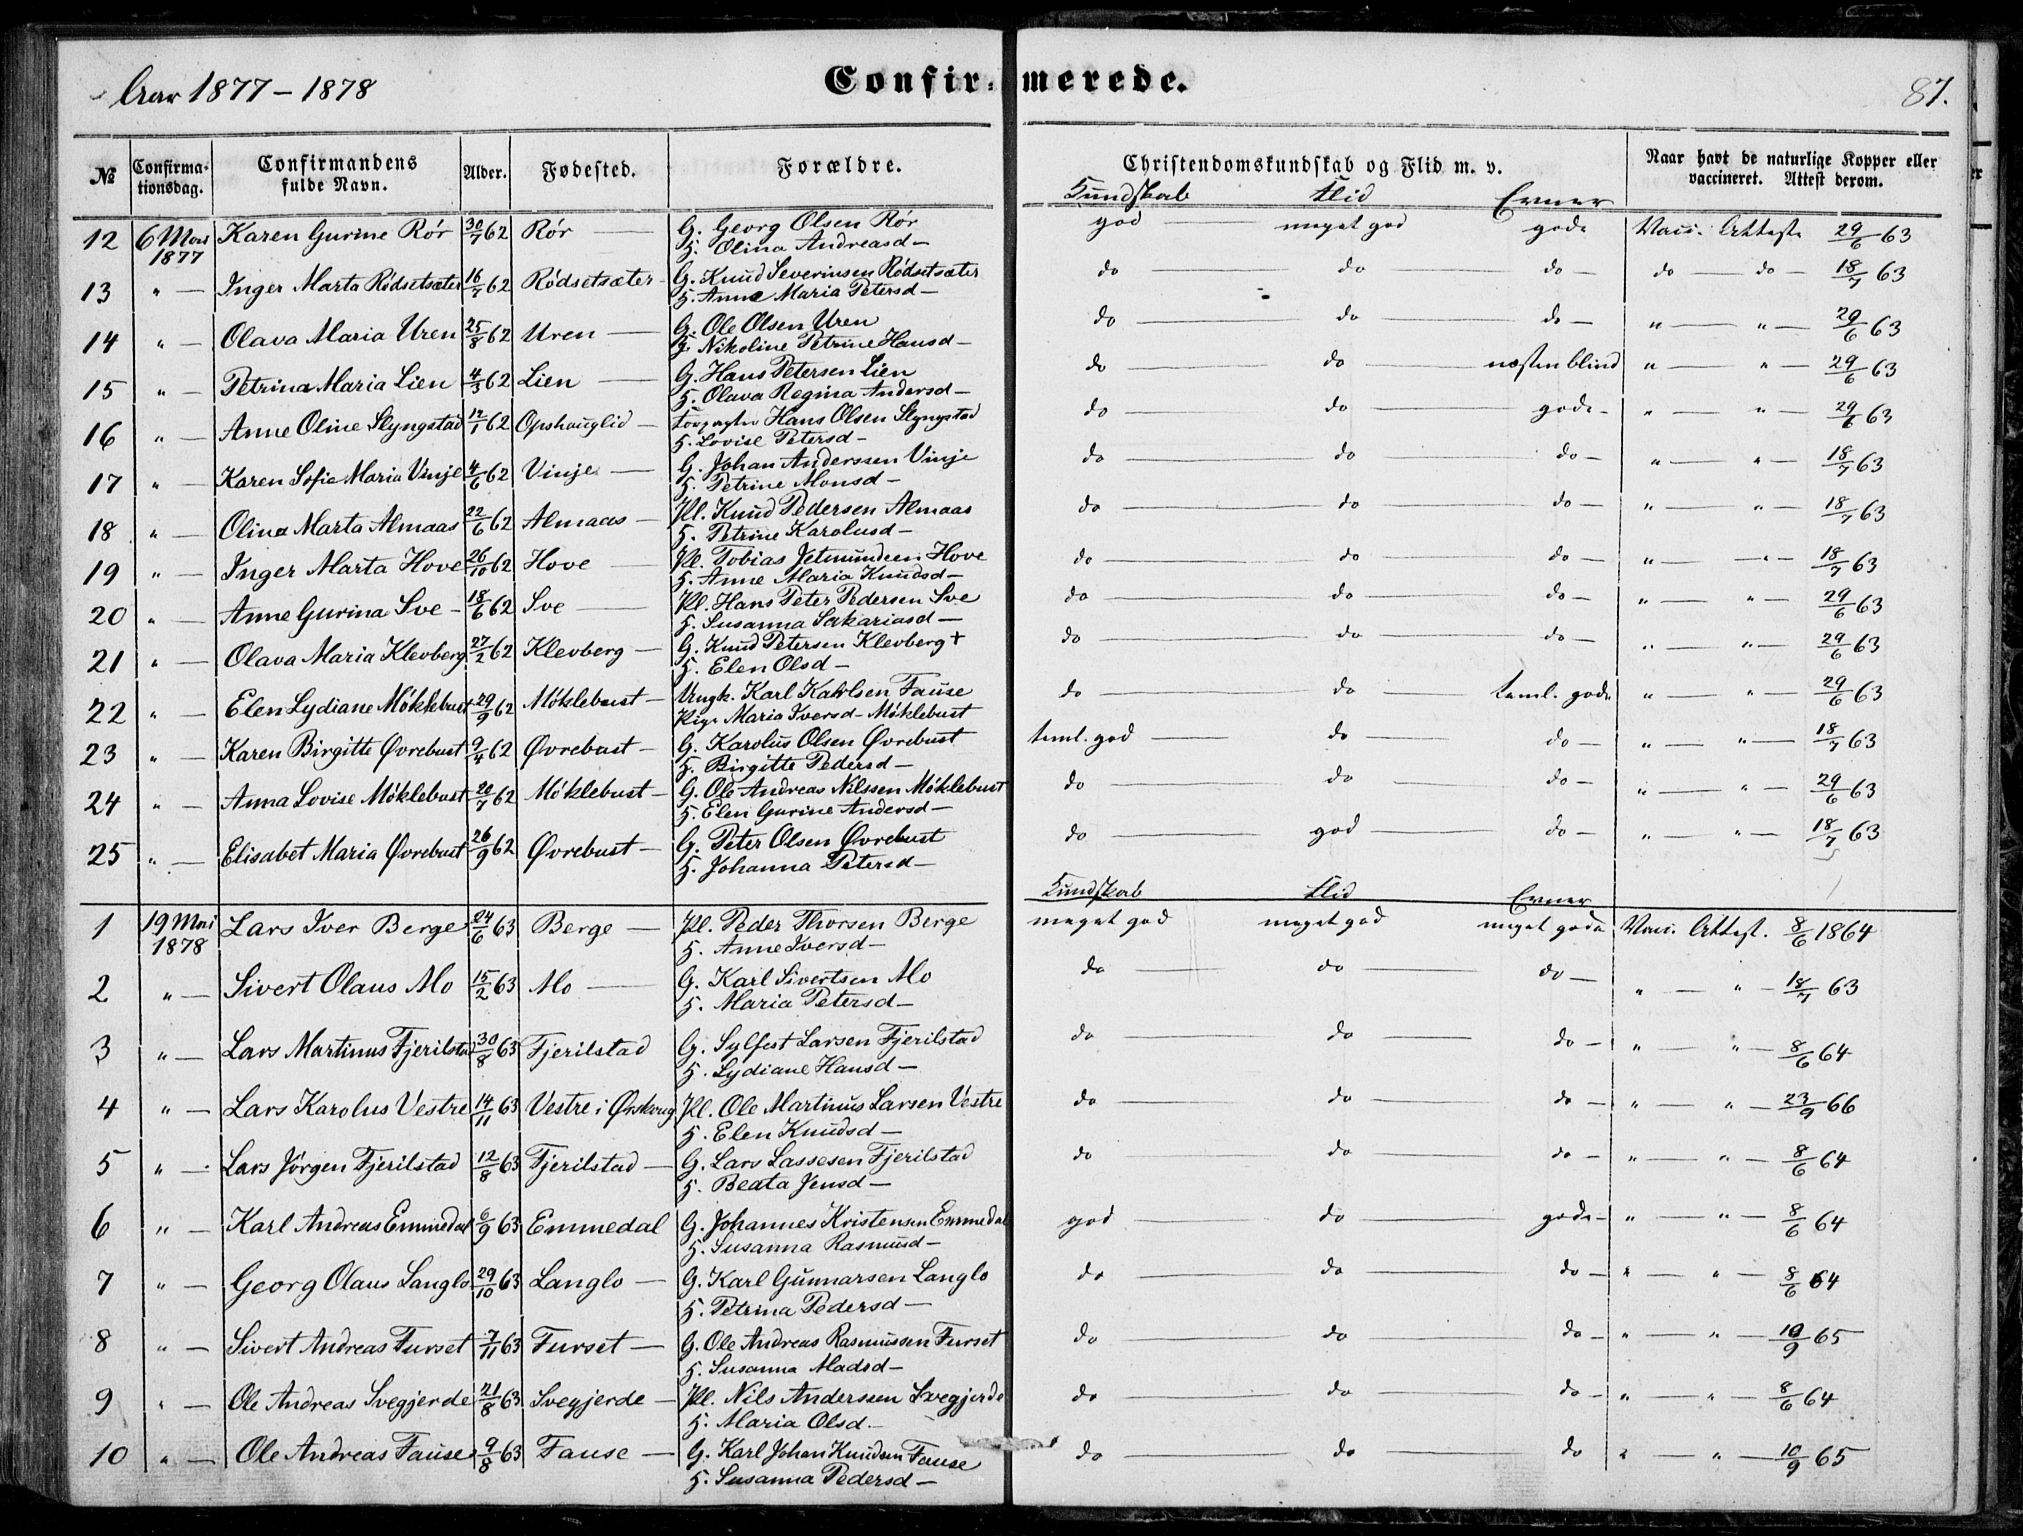 Aar 1877 - 1878 Confirmerede. 87.
№ Confirmationsdag. Confirmandens fulde Navn. Alder. Fødested. Forældre. Christendomskundskab og Flid m. v. Naar havt de naturlige Kopper eller vaccineret. Attest derom.
Kundskab Flid Evner
12 6 Mai 1877 Karen Gurine Rör 30/7 62 Rör — G. Georg Olsen Rör god meget god gode Vacc. Atteste 29/6 63
H. Olina Andreasd —
13 " — Inger Marta Rödsetsæter 16/7 62 Rödsetsæter — G. Knud Severinsen Rödsetsæter do — do — do — do — do — 18/7 63
H. Anne Maria Petersd —
14 " — Olava Maria Uren 25/8 62 Uren — G. Ole Olsen Uren do — do — do — " — " — 29/6 63
H. Nikoline Petrine Hansd —
15 " — Petrina Maria Lien 4/3 62 Lien — G. Hans Petersen Lien do — do — næsten blind " — " — 29/6 63
H. Olava Regina Andersd —
16 " — Anne Oline Slyngstad 12/1 62 Opshauglid — Hans Olsen Slyngstad do — do — gode — " — " — 29/6 63
H. Lovise Petersd —
17 " — Karen Sofie Maria Vinje 4/6 62 Vinje — G. Johan Anderssen Vinje do — do — do — " — " — 18/7 63
H. Petrine Monsd —
18 " — Olina Marta Almaas 22/6 62 Almaas — Pl. Knud Pedersen Almaas do — do — do — " — " — 18/7 63
H. Petrine Karolusd —
19 " — Inger Marta Hove 26/10 62 Hove — Pl. Tobias Jetmundsen Hove do — do — do — " — " — 18/7 63
H. Anne Maria Knudsd —
20 " Anne Gurina Sve — 18/6 62 Sve — Pl. Hans Peter Pedersen Sve do — do — do — " — " — 29/6 63
H. Susanna Sakariasd —
21 " — Olava Maria Klevberg 27/2 62 Klevberg — G. Knud Petersen Klevberg + do — do — do — " — " — 29/6 63
H. Elen Olsd —
22 " — Elen Lydiane Möklebust 29/9 62 Möklebust — Ungk. Karl Karlsen Fause do — do taml. gode " — " — 29/6 63
Pige Maria Iversd — Möklebust
23 " — Karen Birgitte Øvrebust 9/4 62 Øvrebust — G. Karolus Olsen Øvrebust taml. god — do — do — " — " — 18/7 63
H. Birgitte Pedersd —
24 " — Anna Lovise Möklebust 20/7 62 Möklebust — G. Ole Andreas Nilssen Möklebust do — do — do — " — " — 29/6 63
H. Elen Gurine Andersd —
25 " — Elisabet Maria Øvrebust 26/9 62 Øvrebust — G. Peter Olsen Øvrebust do — god — do — " — " — 18/7 63
H. Johanna Petersd —
Kundskab Flid Evner
1 19 Mai 1878 Lars Iver Berge 24/6 63 Berge — Pl. Peder Thorsen Berge meget god meget god meget gode Vacc. Attest. 8/6 1864
H. Anne Iversd —
2 " — Sivert Olaus Mo 15/2 63 Mo — G. Karl Sivertsen Mo do — do — do — " — " — 18/7 63
H. Maria Petersd —
3 " — Lars Martinus Fjerilstad 30/8 63 Fjerilstad G. Sylfest Larsen Fjerilstad do — do — do — " — " — 8/6 64
H. Lydiane Hansd —
4 " — Lars Karolus Vestre 14/11 63 Vestre i Ørskoug Pl. Ole Martinus Larsen Vestre do — do — do — " — " — 23/9 66
H. Elen Knudsd —
5 " — Lars Jörgen Fjerilstad 12/8 63 Fjerilstad — G. Lars Lassesen Fjerilstad do — do — do — " — " — 8/6 64
H. Beata Jensd —
6 " — Karl Andreas Emmedal 6/9 63 Emmedal G. Johannes Kristensen Emmedal god — do — gode — " — " — 8/6 64
H. Susanna Rasmusd —
7 " — Georg Olaus Langlo 29/10 63 Langlo — G. Karl Gunnarsen Langlo do — do — do — " — " — 8/6 64
H. Petrina Pedersd —
8 " — Sivert Andreas Furset 7/11 63 Furset — G. Ole Andreas Rasmussen Furset do — do — do — " — " — 10/9 65
H. Susanna Madsd —
9 " — Ole Andreas Svegjerde 21/8 63 Svegjerde — Pl. Nils Anderssen Svegjerde do — do — do — " — " — 8/6 64
H. Maria Olsd —
10 " — Ole Andreas Fause 9/8 63 Fause — G. Karl Johan Knudsen Fause do — do — do " — " — 10/9 65
H. Susanna Pedersd —